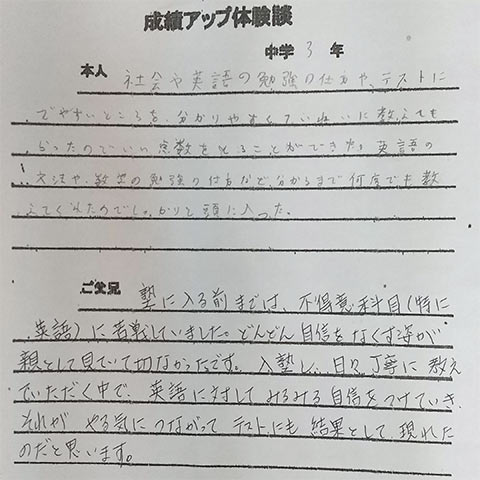 成績アップ体験談
中学 3 年
本人 社会や英語の勉強の仕方や、テストに
でやすいところを、分かりやすくていねいに教えても
らったのでいい点数をとることができた。英語の
文法や、数学の勉強の仕方など、分かるまで何度でも教
えてくれたのでしっかりと頭に入った。
ご父兄 塾に入る前までは、不得意科目(特に
英語)に苦戦していました。どんどん自信をなくす姿が
親として見ていて切なかったです。入塾し、日々丁寧に教え
ていただく中で、英語に対してみるみる自信をつけていき、
それが やる気につながって テストにも 結果として 現れた
のだと思います。